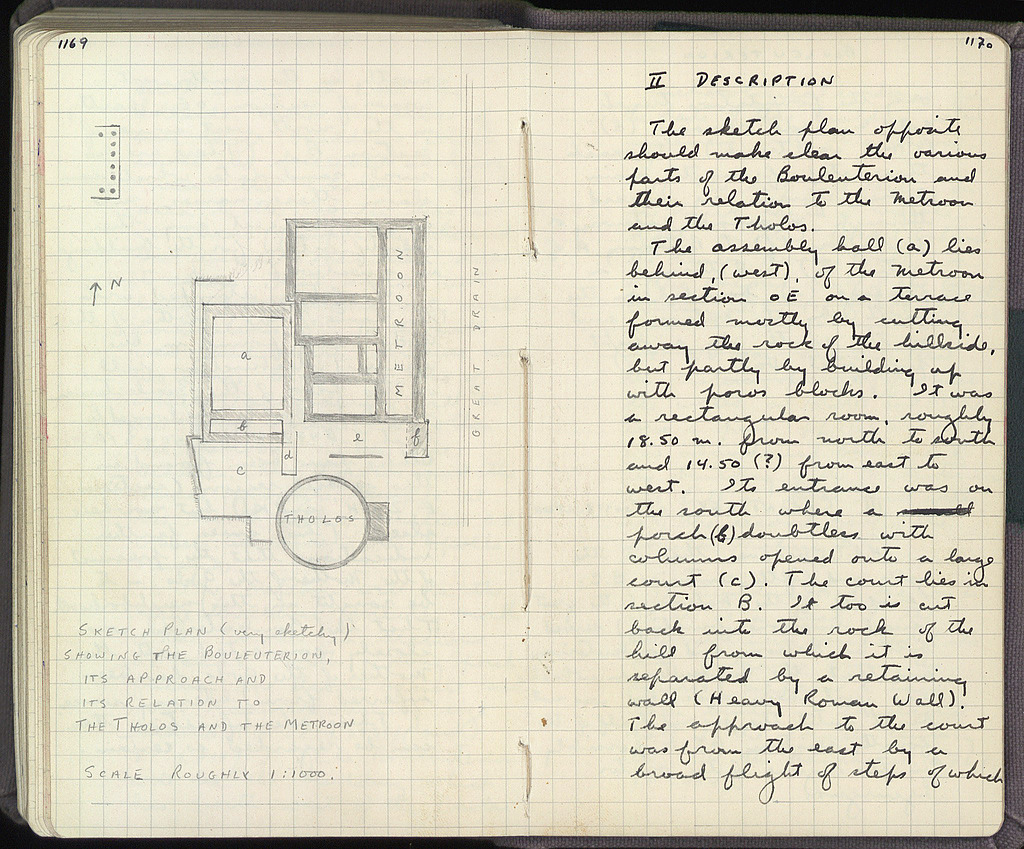 1169
N
METROON
GREAT DRAIN
a
b
c
d
e
f
THOLOS
SKETCH PLAN (very sketchy)
SHOWING THE BOULEUTERION,
ITS APPROACH AND
ITS RELATION TO
THE THOLOS AND THE METROON
SCALE ROUGHLY 1:1000.
1170
II DESCRIPTION
The sketch plan opposite
should make clear the various
parts of the Bouleuterion and
their relation to the Metroon
and the Tholos.
The assembly hall (a) lies
behind, (west), of the Metroon
in section OE on a terrace
formed mostly by cutting
away the rock of the hillside,
but partly by building up
with poros blocks. It was
a rectangular room, roughly
18.50 m. from north to south
and 14.50 (?) from east to
west. Its entrance was on
the south where a
porch (b) doubtless with
columns opened onto a large
court (c). The court lies in
section B. It too is cut
back into the rock of the
hill from which it is
separated by a retaining
wall (Heavy Roman Wall).
The approach to the court
was from the east by a
broad flight of steps of which